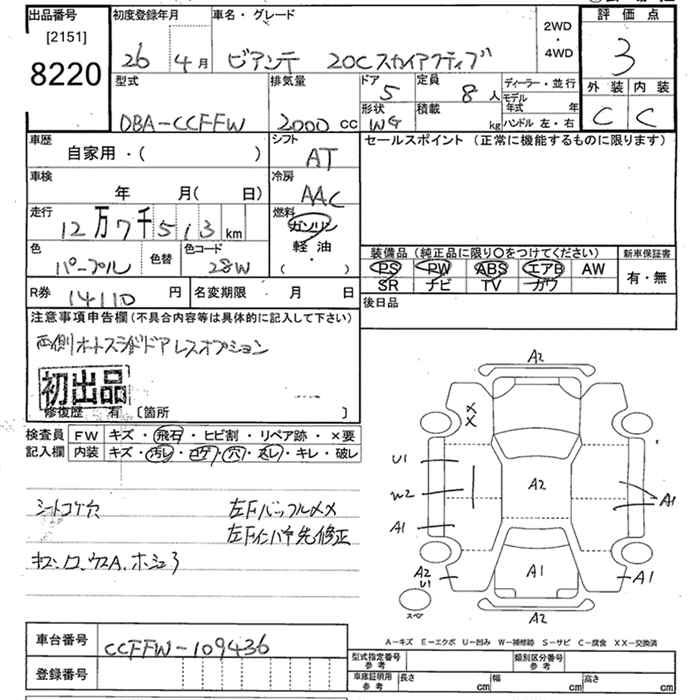 出品番号 初度登録年月 車名・グレード 2WD・4WD 評価点
[2151]
8220 26年 4月 ビアンテ 20Cスカイアクティブ 3
型式 排気量 ドア 定員 ディーラー・並行 外装 内装
DBA-CCFFW 2000cc 5 8人 モデル年式 年 C C
形状 積載 ハンドル 左・右
WG kg
車歴 シフト セールスポイント (正常に機能するものに限ります)
自家用・( ) AT
車検 冷房
年 月( 日) AAC
走行 燃料
12万7千513km ガソリン
軽油
( ・ )
色 色替 色コード 装備品 (純正品に限り〇をつけてください) 新車保証書
パープル 28W PS PW ABS エアB AW 有・無
SR ナビ TV カワ
R券 14110円 名変期限 月 日 後日品
注意事項申告欄(不具合内容等は具体的に記入して下さい)
両側オートスライドドアレスオプション
初出品
修復歴 有 [箇所 ]
検査員 FW キズ・飛石・ヒビ割・リペア跡・×要
記入欄 内装 キズ・汚レ・コゲ・穴・スレ・キレ・破レ
シートコゲ穴 左Fバッフルメメ
左Fインパネ先修正
A2
XX
U1
W2
A1
A2
A1
A2
U1
A1
A1
スペア
A2
A-キズ E-エクボ U-凹み W-補修跡 S-サビ C-腐食 XX-交換済
車台番号 CCFFW-109436
登録番号
型式指定番号 参考 類別区分番号 参考
車庫証明用 参考 長さ cm 幅 cm 高さ cm